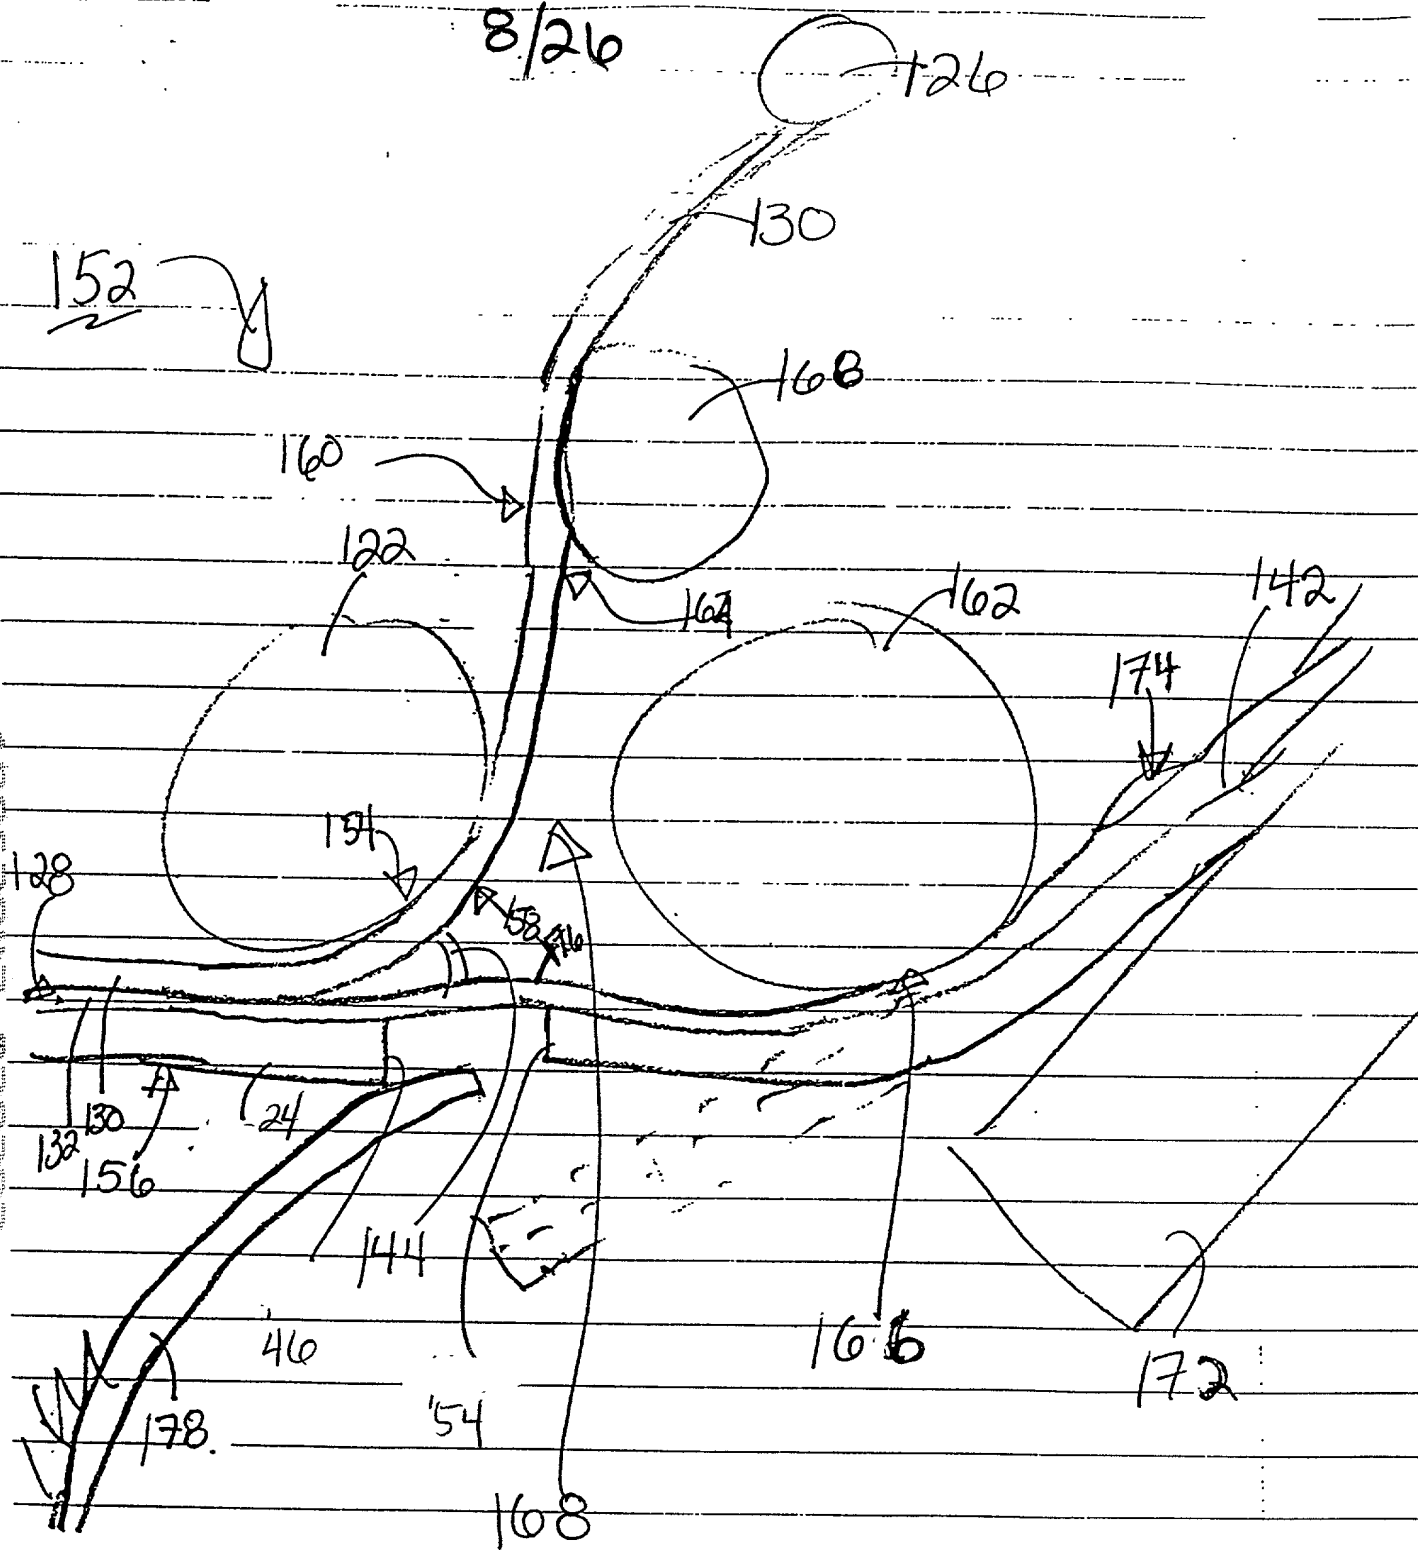 8/26
126
130
152
168
160
122
164
162
142
174
154
128
158
176
132
130
24
156
144
46
166
172
54
178.
168